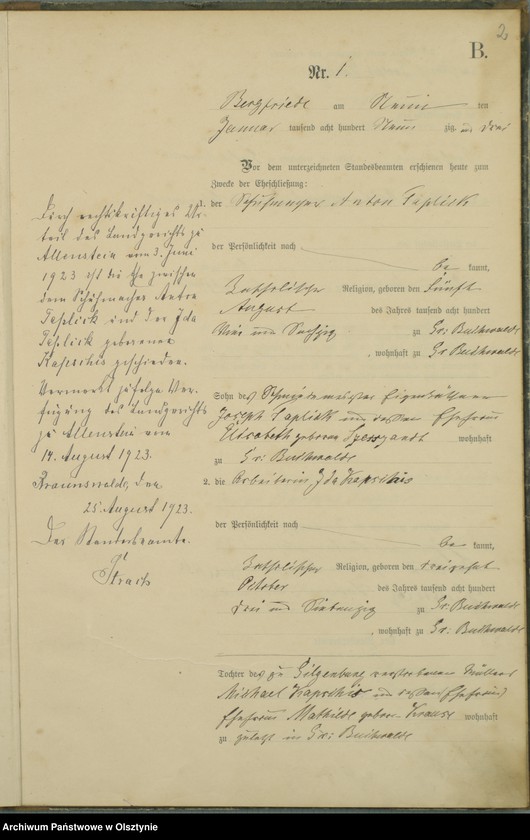 2
B.
Nr. 1.
Bergfriede am Neun ten
Januar tausend acht hundert Neun zig und drei
Vor dem unterzeichneten Standesbeamten erschienen heute zum
Zwecke der Eheschließung:
1. der Schuhmacher Anton Teplick
der Persönlichkeit nach
be kannt,
katholischer Religion, geboren den fünften
August des Jahres tausend acht hundert
und Sechzig zu Gr: Buchwalde
, wohnhaft zu Gr Buchwalde
Sohn des Eigenkäthner
Joseph Teplick und dessen Ehefrau
Elisabeth geborene wohnhaft
zu Gr: Buchwalde
2. die Arbeiterin, Ida Kapschis
der Persönlichkeit nach
be kannt,
katholischer Religion, geboren den
October des Jahres tausend acht hundert
drei und Siebenzig zu Gr: Buchwalde
, wohnhaft zu Gr: Buchwalde
Tochter des zu Gilgenburg verstorbenen Müllers
Michael Kapschis und dessen Ehefrau
Ehefrau Mathilde geborne Krause wohnhaft
zu zuletzt in Gr: Buchwalde
Durch rechtskräftiges Ur-
teil des Landgerichts zu
Allenstein vom 3. Juni
1923 ist die Ehe zwischen
dem Schuhmacher Anton
Teplick und der Ida
Teplick geborenen
Kapschis geschieden.
Vermerkt zufolge Ver-
fügung des Landgerichts
zu Allenstein vom
14. August 1923.
Braunswalde, den
25. August 1923.
Der Standesbeamte.
Archiwum Państwowe w Olsztynie